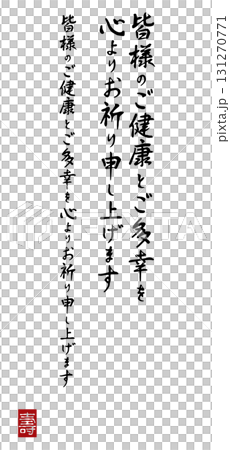 皆様のご健康とご多幸を
心よりお祈り申し上げます
皆様のご健康とご多幸を心よりお祈り申し上げます
131270771